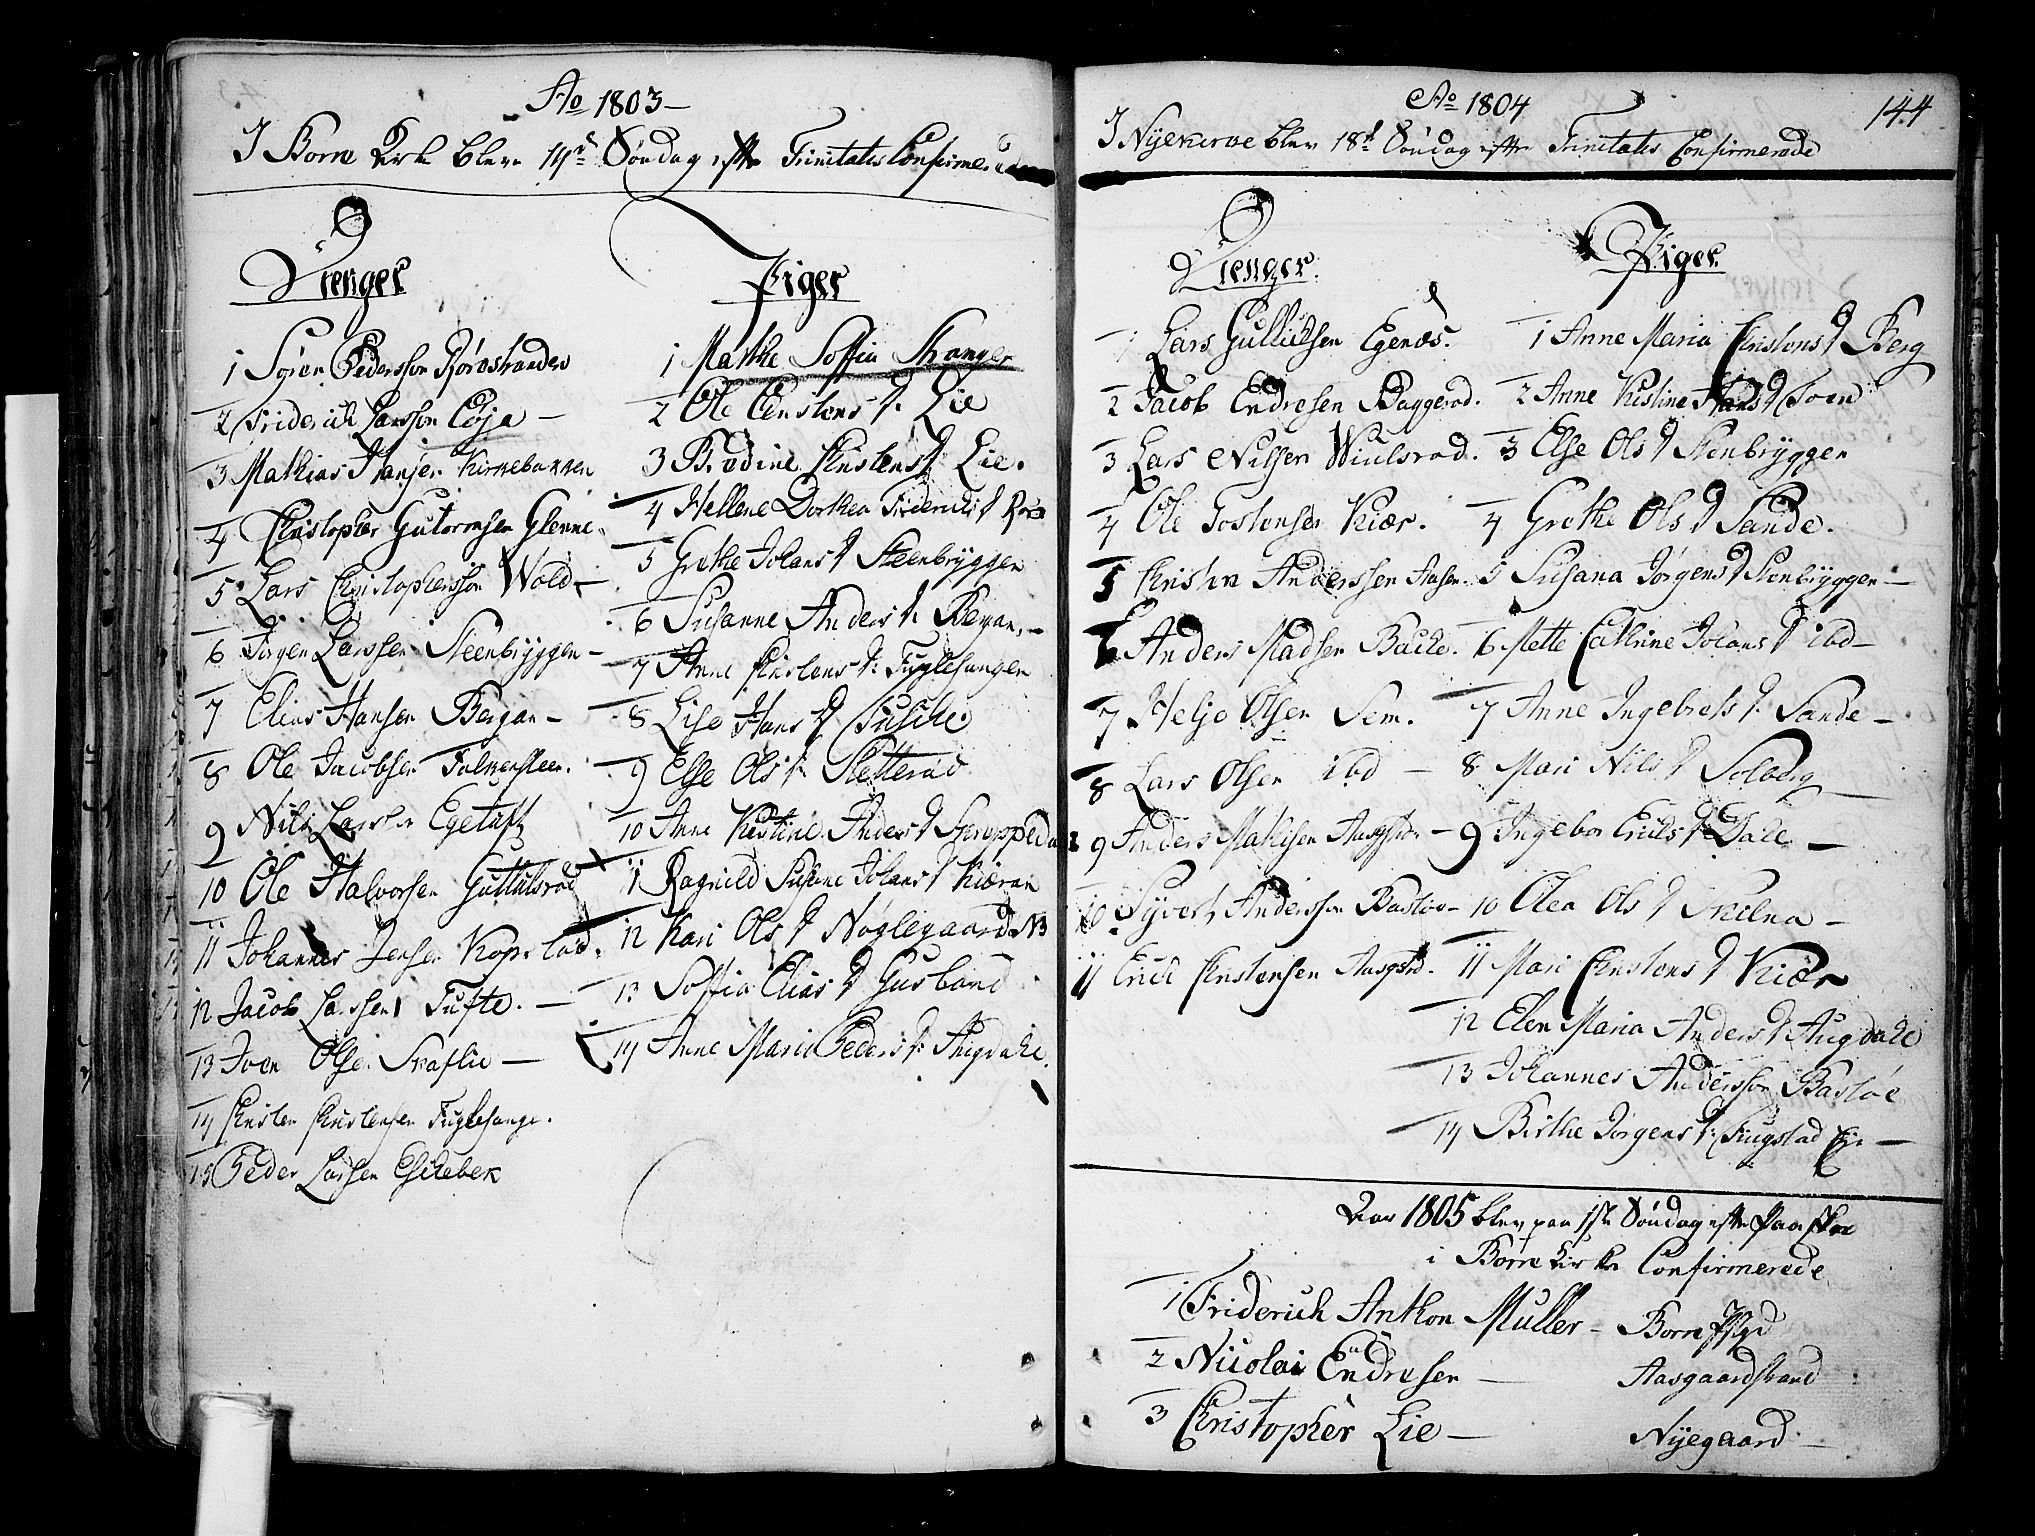 Ao 1803
I Borre Kirke bleve 14de Søndag efter Trinitatis Confirmerede
Drenger
1 Søren Pedersson Rørestranden
2 Friderich Larsson Coja
3 Mathias Hansen Kirkebakken
4 Christopher Gutormsen Glenne
5 Lars Christophersson Wold
6 Jørgen Larssen Steenbryggen
7 Elias Hansen Bergan
8 Ole Jacobsen Falkensteen
9 Nils Larssen Egetuft
10 Ole Halvorsen Guttulsrød
11 Johannes Jensen Kopstad
12 Jacob Larssen Tufte
13 Joen Olsen Skaflie
14 Christen Christensen Fuglesange
15 Peder Larsen Eskebek
Piger
1 Marthe Soffia Stranger
2 Ole Christens D. Lie
3 Bodine Christens D. Lie
4 Hellene Dorthea Fridericks D
5 Grethe Johans D Steenbryggen
6 Susanne Anders D. Bergan
7 Anne Christens D: Fuglesangen
8 Lise Hans D
9 Else Ols D. Sletterød
10 Anne Kirstine Anders D
11 Ragnild Susane Johans D Kiæran
12 Kari Ols D Nøglegaard NB
13 Soffia Elias D Gusland
14 Anne Maria Peders D: Augdahl
Ao 1804
144
I Nyekirke blev 18de Søndag efter Trinitatis Confirmerede
Drenger
1 Lars Gullicksen Egenæs
2 Jacob Endresen Baggerød
3 Lars Nilsen Wiulsrød
4 Ole Tostensen Kiær
5 Christen Anderssen Aasen
6 Anders Madsen Backe
7 Helje Olsen Sem
8 Lars Olsen ibd
9 Anders Mathisen
10 Syvert Andersson Bastøe
11 Erich Christensen
Piger
1 Anne Maria Christens D Berg
2 Anne Kistine Hans D Foen
3 Else Ols D Stenbryggen
4 Grethe Ols D Sande
5 Susana Jørgens D Stenbryggen
6 Mette Cathrine Johans D ibd
7 Anne Ingebrets D. Sande
8 Mari Nils D Solberg
9 Ingebor Ericks D Dale
10 Olea Ols D
11 Mari Christens D Kiær
12 Elen Maria Anders D Augdahl
13 Johannes Andersson Bastøe
14 Birthe Jørgens D: Eie
Aar 1805 blev paa 1ste Søndag efter Paaske
i Borre Kirke Confirmerede
1 Friderich Anthon Muller - Borre Pstgd
2 Nicolai Endresen - Aasgaardstrand
3 Christopher Lie - Nyegaard